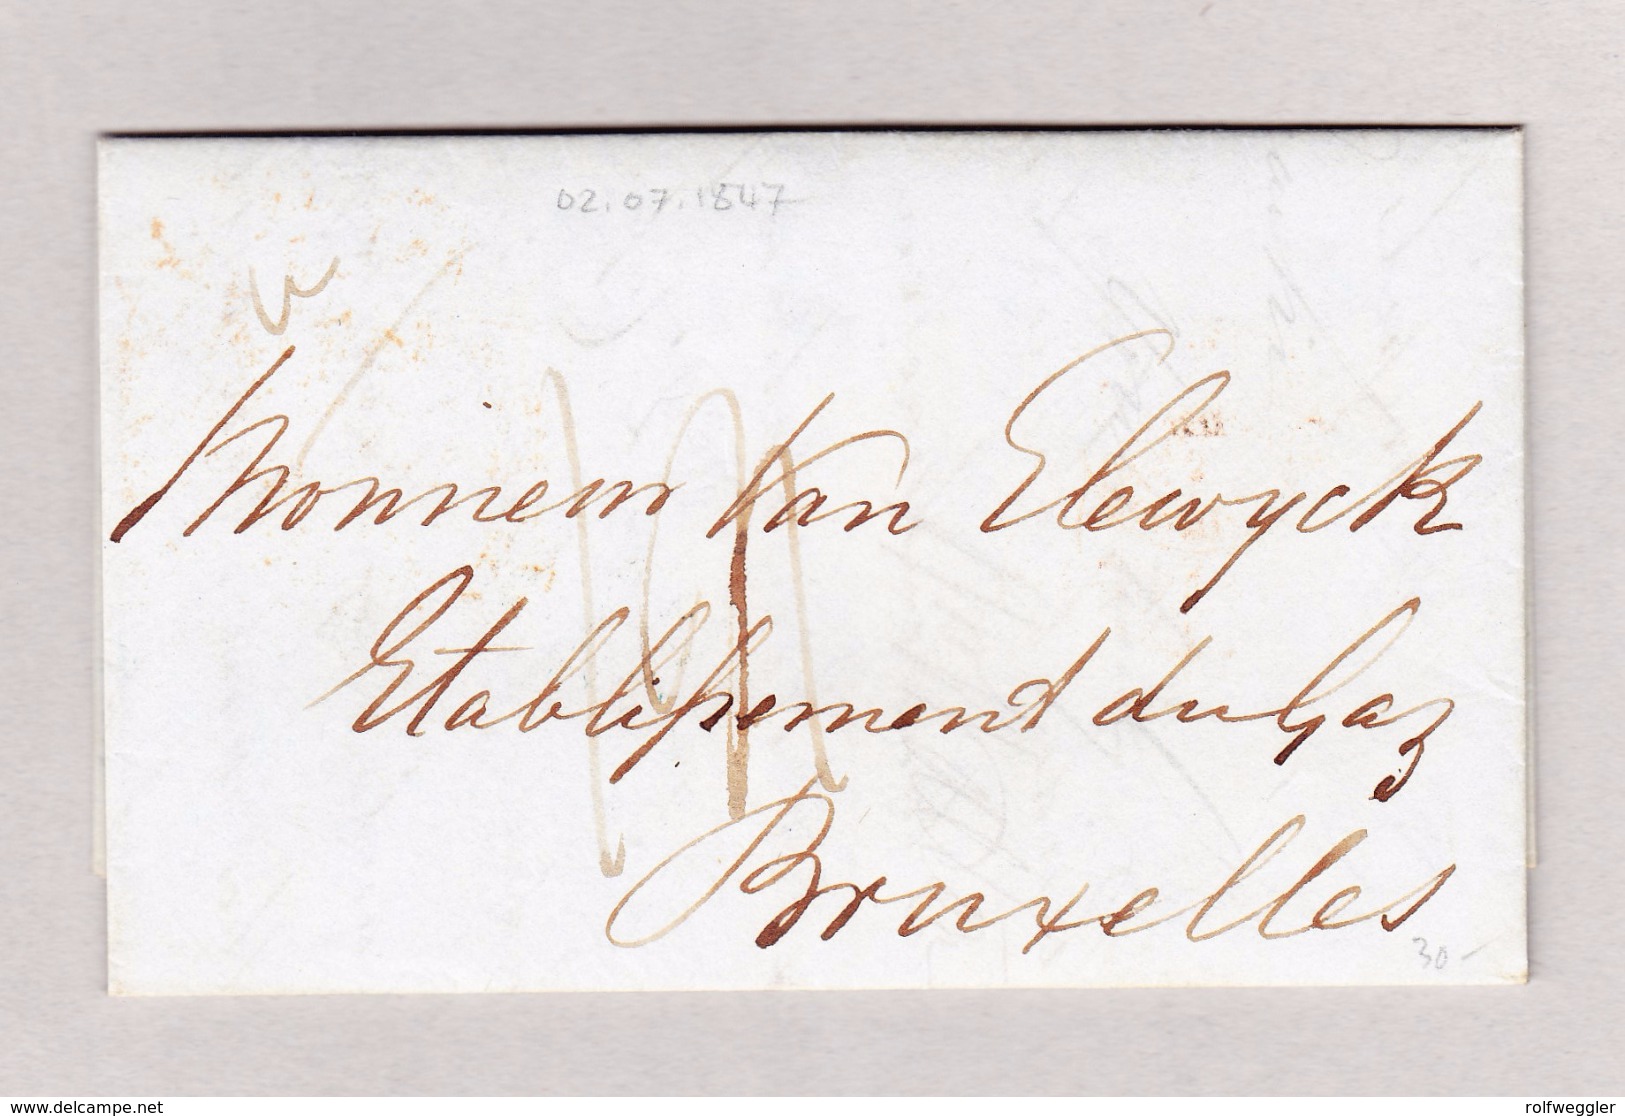 02.07.1847
Monsieur Van Elewyck
Etablissement du Gaz
Bruxelles
30-
www.delcampe.net
rolfweggler